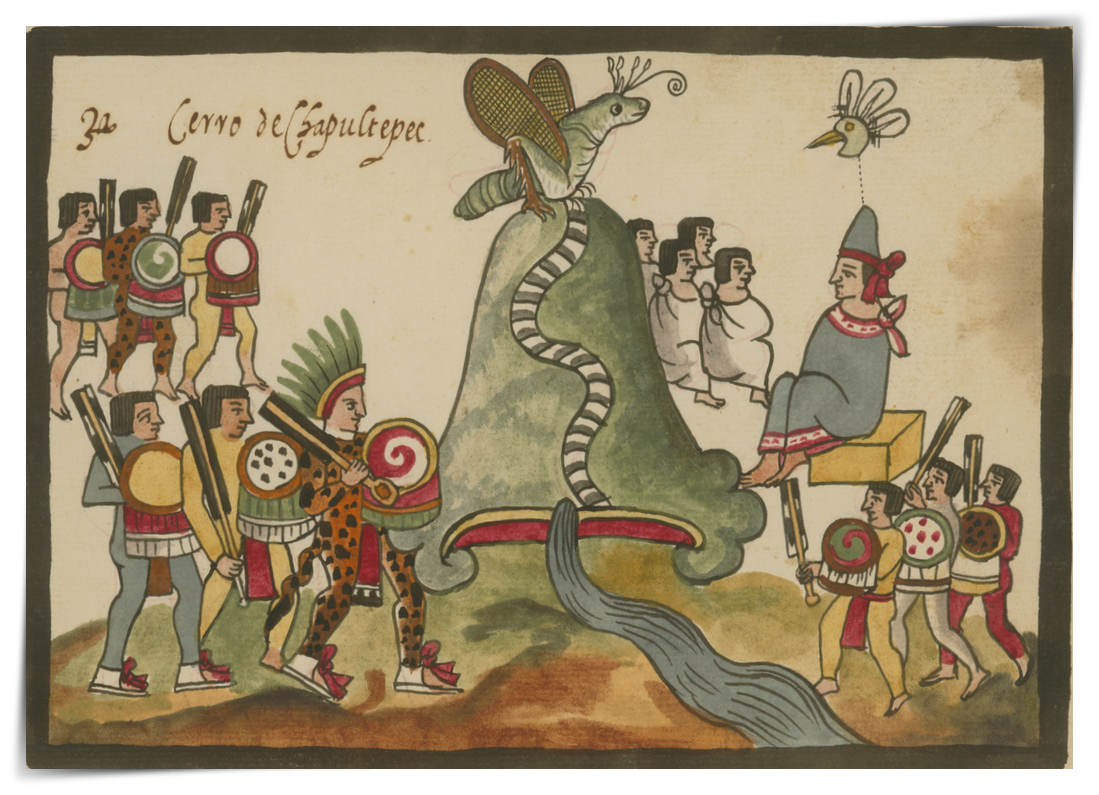 Cerro de Chapultepec.